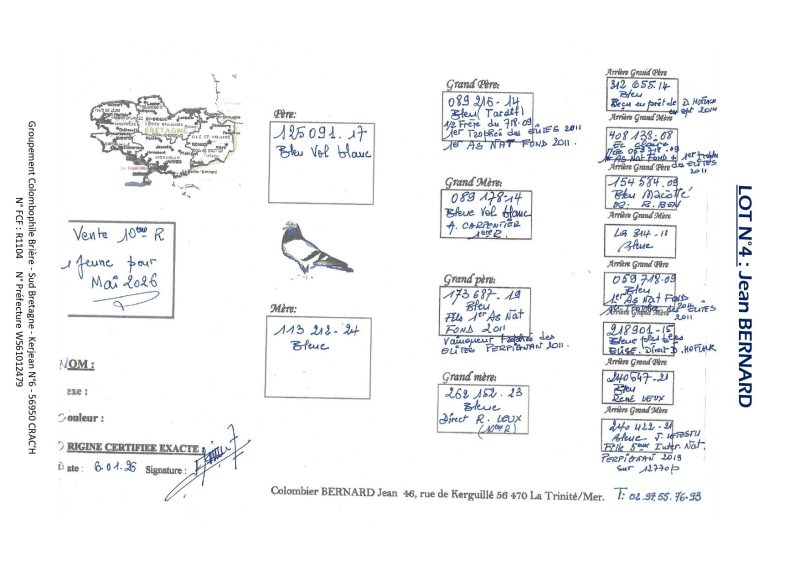 LOT N°4 : Jean BERNARD
Groupement Colombophile Brière - Sud Bretagne - Kerjean N°6 - 56950 CRAC'H
N° FCF : R1104 N° Préfecture W5S1012479
BRETAGNE
Vente 10ème R
1 Jeune pour
Mai 2026
NOM :
exe :
Couleur :
ORIGINE CERTIFIEE EXACTE :
Date : 6.01.26 Signature :
Père:
125091.17
Bleu Vol blanc
Mère:
113 212-24
Bleue
Grand Père:
089 216-14
Bleu (Tardif)
1/2 Frère du 718.09
1er Trophée des ELITES 2011
1er AS NAT FOND 2011.
Grand Mère:
089 178-14
Bleue Vol blanc
A. CARPENTIER
1ère R.
Grand père:
173 687-19
Bleu
Fils 1er As Nat
FOND 2011
Vainqueur trophée des
ELITES PERPIGNAN 2011.
Grand mère:
262 152.23
Bleue
Direct R. LEUX
(10ème R)
Arrière Grand Père
312 655.14
Bleu
Reçu en prêt de D. HOFLACK
en sept 2014
Arrière Grand Mère
408 138-08
1er As NAT FOND + 1er trophée
des ELITES
2011
Arrière Grand Père
154 584.09
Bleu Macotté
R. BEN
Arrière Grand Mère
La 814-11
Bleue
Arrière Grand Père
059 718.09
Bleu
1er As Nat Fond
1er Trophée des ELITES
2011
Arrière Grand Mère
218901-15
ELISE. Direct D. HOFLACK
Arrière Grand Père
240647-21
Bleu
René LEUX
Arrière Grand Mère
240 422-21
Bleue J. LETESTU
Fille 5ème Inter. Nat.
PERPIGNAN 2019
sur 12770p
Colombier BERNARD Jean 46, rue de Kerguillé 56 470 La Trinité/Mer. T: 02.97.55.76.93